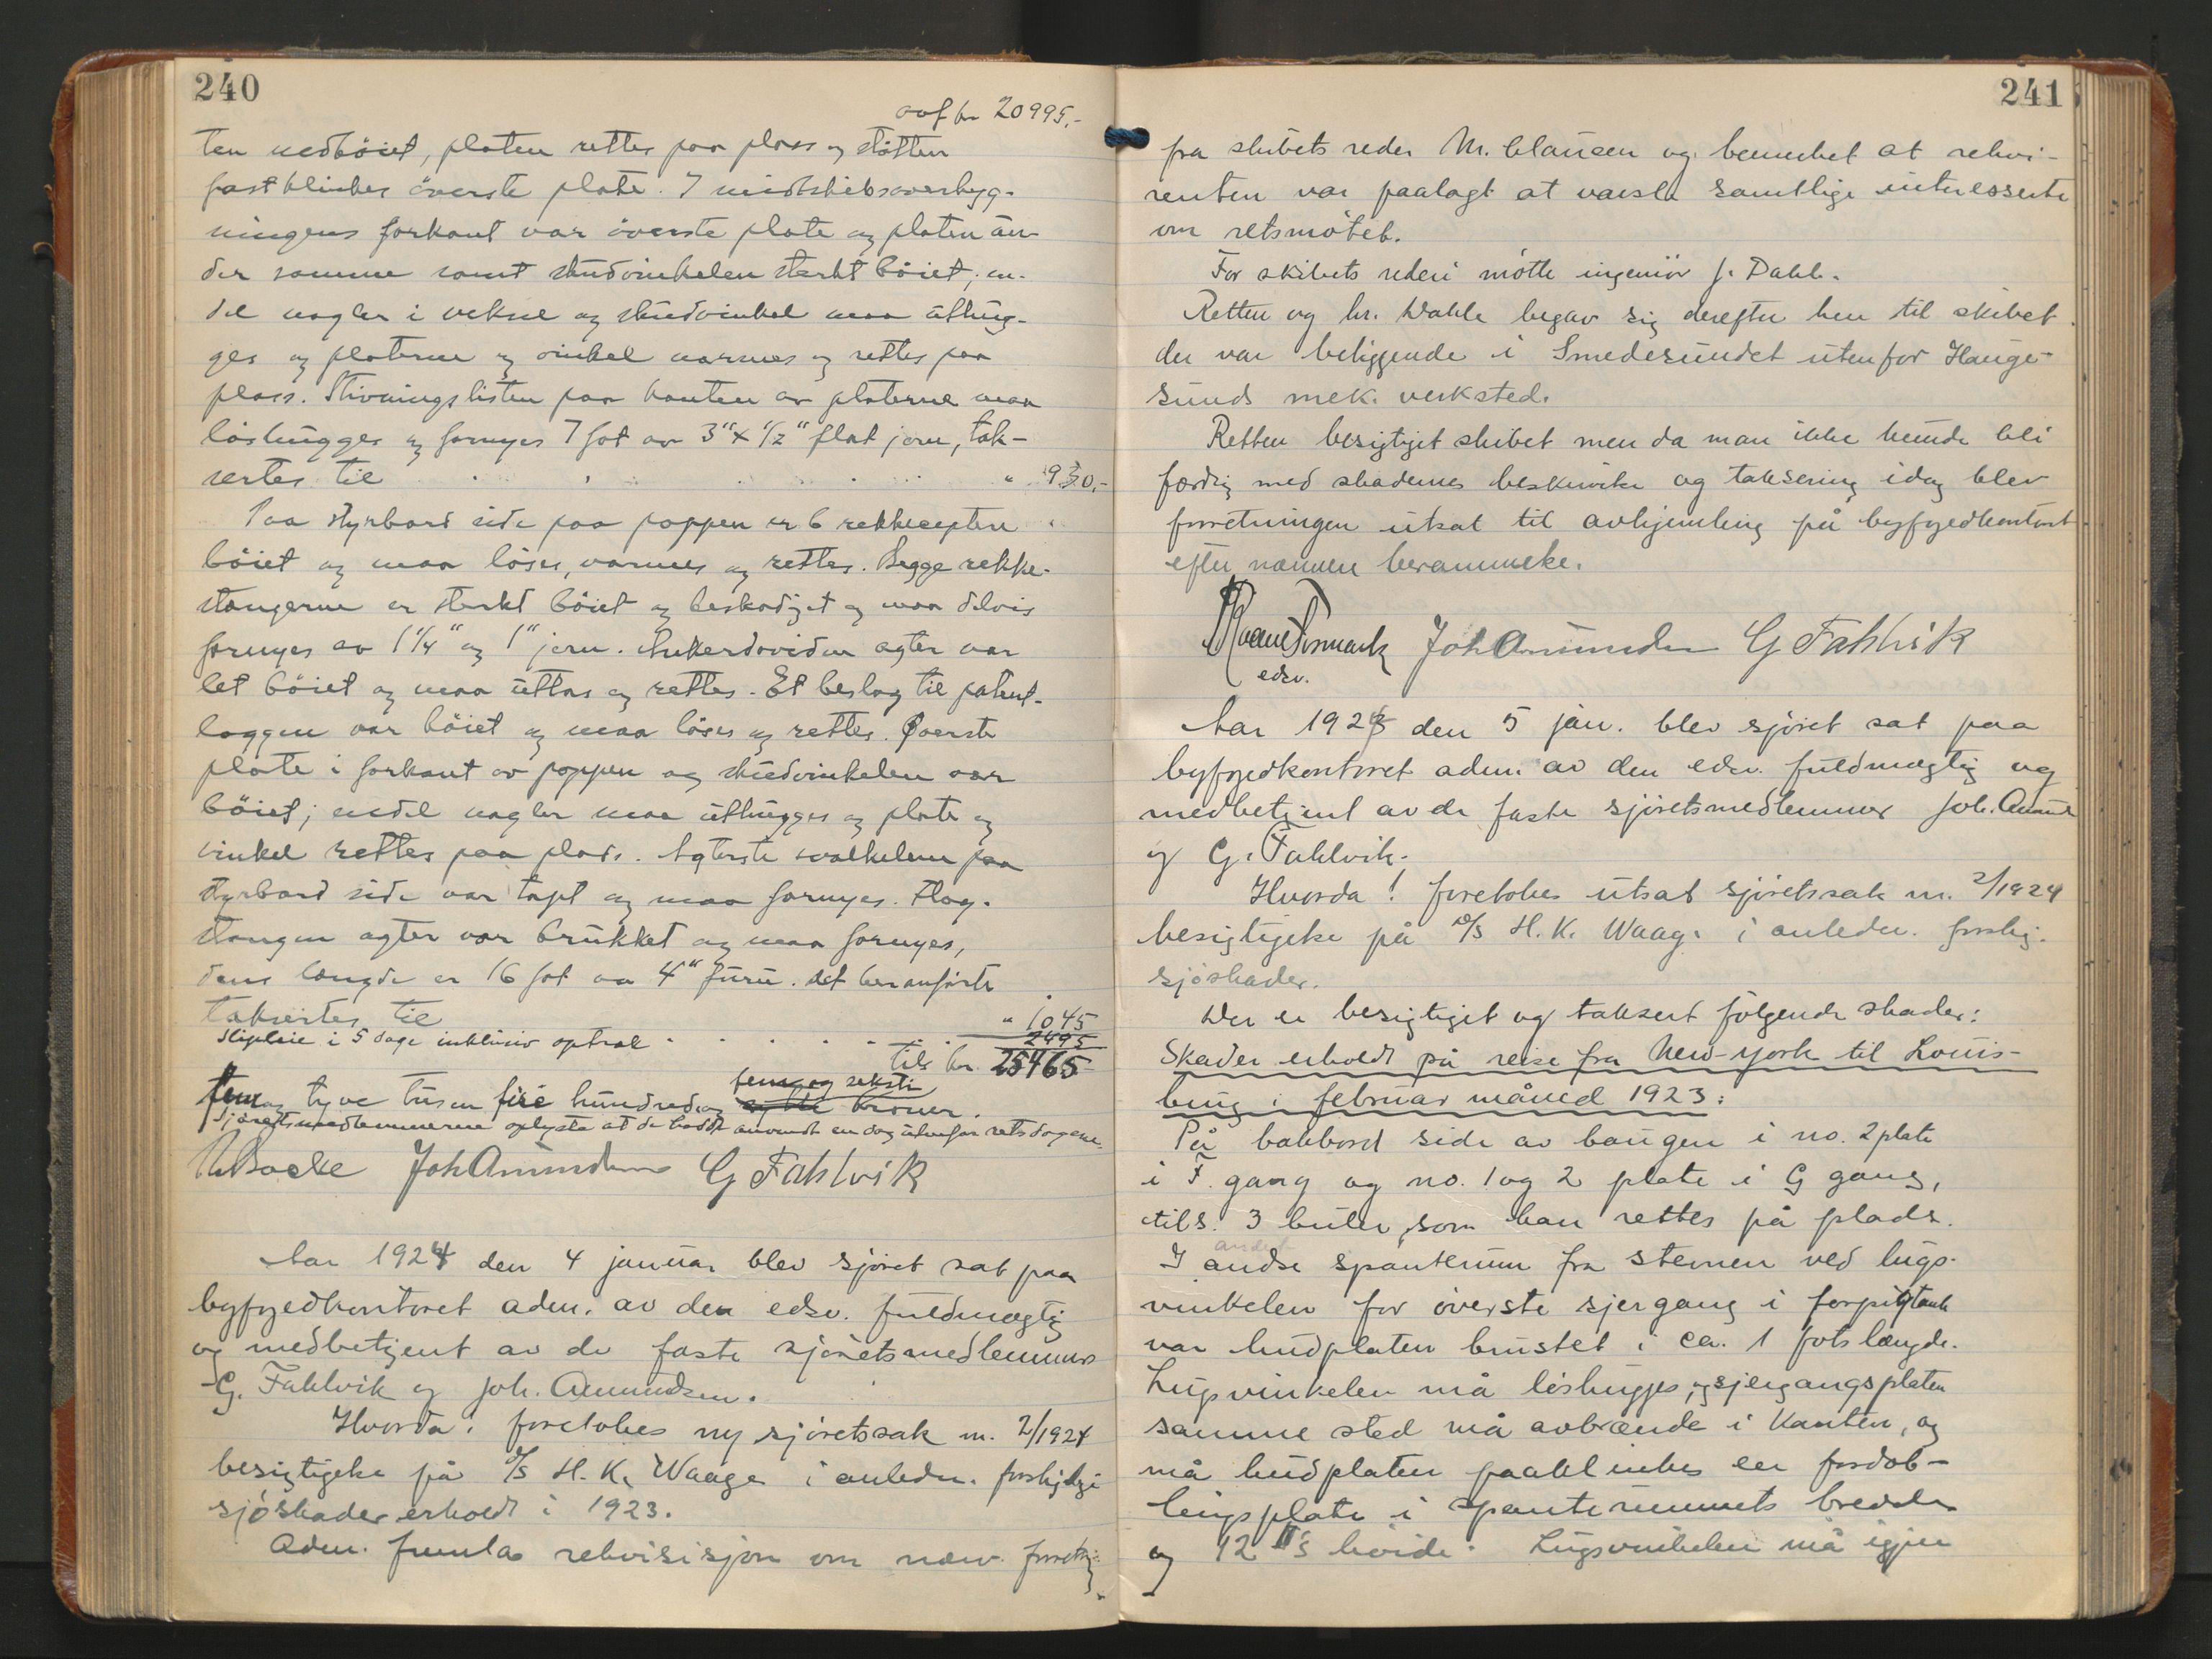 240
ovf kr 20995,-
ten nedböiet, platen rettes paa plass og stötten
fastklinkes överste plate. I midtskibsoverbyg-
ningens forkant var överste plate og platen ün-
der samme samt skudvinkelen sterkt böiet; en-
del nagler i veksel og skudvinkel maa üthug-
ges og platerne og vinkel varmes og rettes paa
plass. Stivningslisten paa kanten av platerne maa
löshügges og fornyes 7 fot av 3" x 1/2" flat jern, tak-
sertes til " 930,-
Paa styrbord side paa poppen er 6 rekkeceptere
böiet og maa löses, varmes og rettes. Begge rekke-
stangerne er sterkt böiet og beskadiget og maa delvis
fornyes av 1 1/4" og 1" jern. Ankerdaviden agter var
let böiet og maa üttas og rettes. Et beslag til patent-
loggen var böiet og maa löses og rettes. Øverste
plate i forkant av poppen og skudvinkelen var
böiet; endel nagler maa üthügges og plate og
vinkel rettes paa plads. Agterste svalkelem paa
styrbord side var tapt og maa fornyes. Flag-
stangen agter var brükket og maa fornyes,
dens længde er 16 fot av 4" fürü. Det her anförte
takseres til " 1045
Slipleie i 5 dage inklüsiv optræk 2495
tils kr. 25465-
fem og seksti
fem og tyve tüsen fire hündred og kroner.
Sjöretsmedlemmerne oplyste at de hadde anvendt en dag ütenfor retsdagene.
Joh Amundsen G Fahlvik
Aar 1924 den 4 januar blev sjöret sat paa
byfogedkontoret adm. av den edsv. fuldmægtig
og medbetjent av de faste sjöretsmedlemmer
G. Fahlvik og Joh. Amundsen.
Hvorda! foretokes ny sjöretssak nr. 2/1924
besigtigelse på D/S H. K. Waage i anledn. forskjellige
sjöskader erholdt i 1923.
Adm. fremla rekvisisjon om nævn. forretn.
241
fra skibets reder M. Clausen og bemerket at rekvi-
renten var paalagt at varsle samtlige interesserte
om retsmötet.
For skibets rederi mötte ingeniör J. Dahl.
Retten og hr. Dahle begav sig derefter hen til skibet
der var beliggende i Smedesundet utenfor Hauge-
sunds mek. verksted.
Retten besigtiget skibet men da man ikke kunde bli
færdig med skadernes beskrivelse og taksering idag blev
forretningen utsat til avhjemling på byfogedkontoret
efter nærmere berammelse.
Joh Amundsen G Fahlvik
edsv.
Aar 1924 den 5 jan. blev sjöret sat paa
byfogedkontoret adm. av den edsv. fuldmægtig og
medbetjent av de faste sjöretsmedlemmer Joh. Amunds
og G. Fahlvik.
Hvorda! foretokes utsat sjöretssak nr. 2/1924
besigtigelse på D/S H. K. Waage i anledn. forskj.
sjöskader.
Der er besigtiget og taksert fölgende skader:
Skader erholdt på reise fra New-York til Louis-
burg i februar måned 1923:
På bakbord side av baugen i no. 2 plate
i F. gang og no. 1 og 2 plate i G gang,
tils. 3 buler, som kan rettes på plads.
andet
I andre spanterum fra stevnen ved lugs-
vinkelen for överste sjergang i forpigtank
var hudplaten brustet i ca. 1 fots længde.
Lugsvinkelen må löshugges, og sjergangsplaten
samme sted må avbrænde i kanten, og
må hudplaten paaklinkes en fordob-
lingsplate i spanterummets bredde
og 12"s höide. Lugsvinkelen må igjen